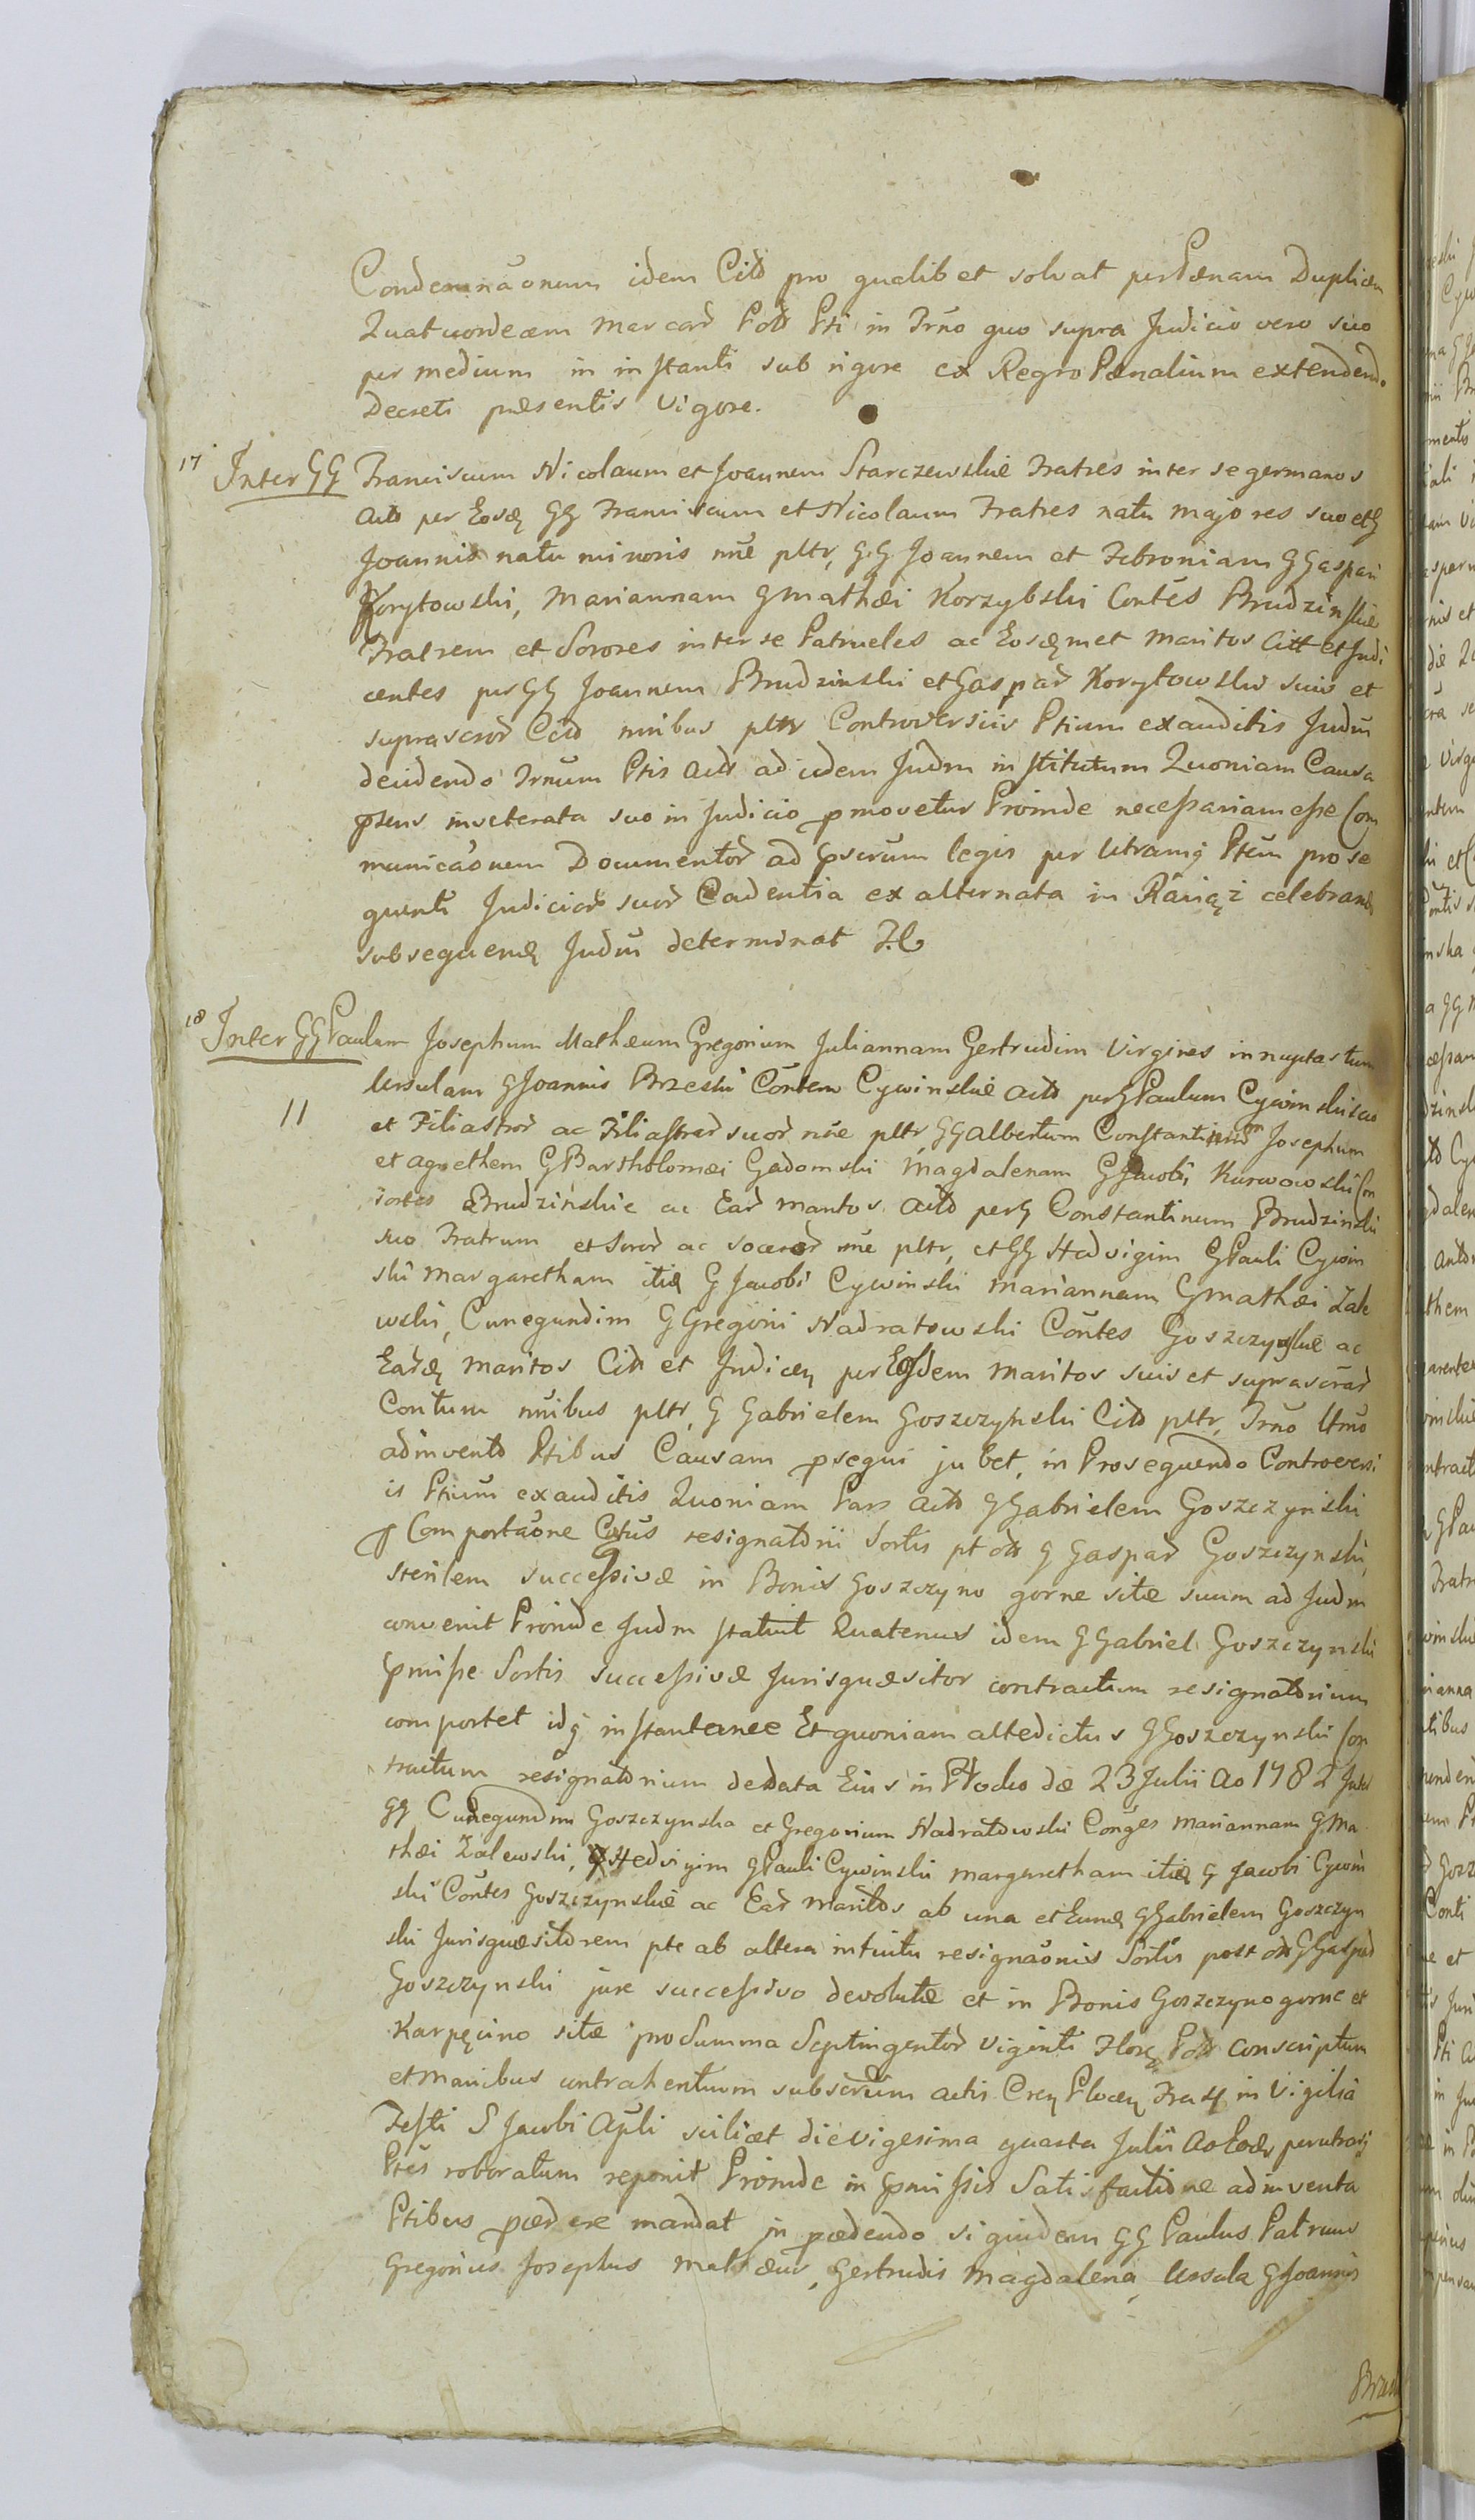 Condemnaõnum idem Citd pro qualibet solvat per Pænam Duplicem
Quatuordecem Marcar Pols Pti in Trño quo supra Judicio vero suo
per medium in instanti sub rigore ex Regro Pænalium extendendo
Decreti præsentis vigore.
17 Inter GG Franciscum Nicolaum et Joannem Starczewskie Fratres inter se germanos
Actd per Eosq GG Franciscum et Nicolaum Fratres natu majores suo et G
Joannis natu minoris nñe pltr, G.G Joannem et Febroniam G Gaspari
Korytowski, Mariannam G Mathæi Korzybski Contes Brudzinskie
Fratrem et Sorores inter se Patrueles ac Eosqmet Maritos Citt et Judi
centes per GG Joannem Brudzinski et Gaspar Korytowski suis et
suprascror Citd nnibus pltr Controversiis Ptium exauditis Judm
decidendo Trnum Ptis Actd ad idem Judm institutum Quoniam Causa
pñens inveterata suo in Judicio pmovetur Proinde necessariam esse Com
municaõnem Documentor ad pscrum legis per Utramq Ptem pro se
quenti Judicior suor Cadentia ex alternata in Raciąż celebrand
subsequenq Judm determinat J.C.
18 Inter GG Paulum Josephum Mathæum Gregorium Juliannam Gertrudim Virgines innuptas tum
11
Ursulam G Joannis Brzeski Contem Cywinskie Actd per G Paulum Cywinski suo
et Filiastror ac Filiastrar suor nñe pltr GG Albertum Constantinum Josephum
et Agnethem G Bartholomæi Gadomski Magdalenam G Jacobi Kurwowski Con
sortes Brudzinskie ac Ear Maritos Actd per G Constantinum Brudzinski
suo Fratrum et Soror ac Socerор nñe pltr, et GG Hedvigim G Pauli Cywin
ski Margaretham itiq G Jacobi Cywinski Mariannam G Mathæi Zale
wski, Cunegundim G Gregorii Nadratowski Contes Goszczynskie ac
Earq Maritos Citt et Judicen per Eosdem Maritos suis et suprascrar
Contum nnibus pltr, G Gabrielem Goszczynski Citd pltr, Trño Utño
adinvento Ptibus Causam psequi jubet, in Prosequendo Controversi
is Ptium exauditis Quoniam Pars Actd G Gabrielem Goszczynski
p Comportaõne Ctus resignatorii Sortis pt ots G Gaspar Goszczynski
sterilem successivæ in Bonis Goszczyno gorne sitæ suum ad Judm
convenit Proinde Judm statuit Quatenus idem G Gabriel Goszczynski
pmisse Sortis successivæ Jurisquæsitor contractum resignatorium
comportet idq instantanee Et quoniam altedictus G Goszczynski Con
tractum resignatorium de data Ejus in Płocko die 23 Julii Ao 1782 Inter
GG Cunegundim Goszczynska et Gregorium Nadratowski Conges Mariannam G Ma
thæi Zalewski, Hedvigim G Pauli Cywinski Margaretham itiq G Jacobi Cywin
ski Contes Goszczynskie ac Ear Maritos ab una et Eumq G Gabrielem Goszczyn
ski Jurisquæsitorem pte ab altera intuitu resignaõnis Sortis post ots G Gaspar
Goszczynski jure successivo devolutæ et in Bonis Goszczyno gorne et
Karpęcino sitæ pro Summa Septingentor viginti Florq Pols conscriptum
et manibus contrahentium subscrum actis Cren Plocen in Vigilia
Festi S Jacobi Apli scilicet die vigesima quarta Julii Ao Eoq per utrasq
Ptes roboratum reponit Proinde in pmissis Satisfactione adinventa
Ptibus pcedere mandat in pcedendo siquidem GG Paulus Patruus
Gregorius Josephus Mathæus, Gertrudis Magdalena, Ursula G Joannis